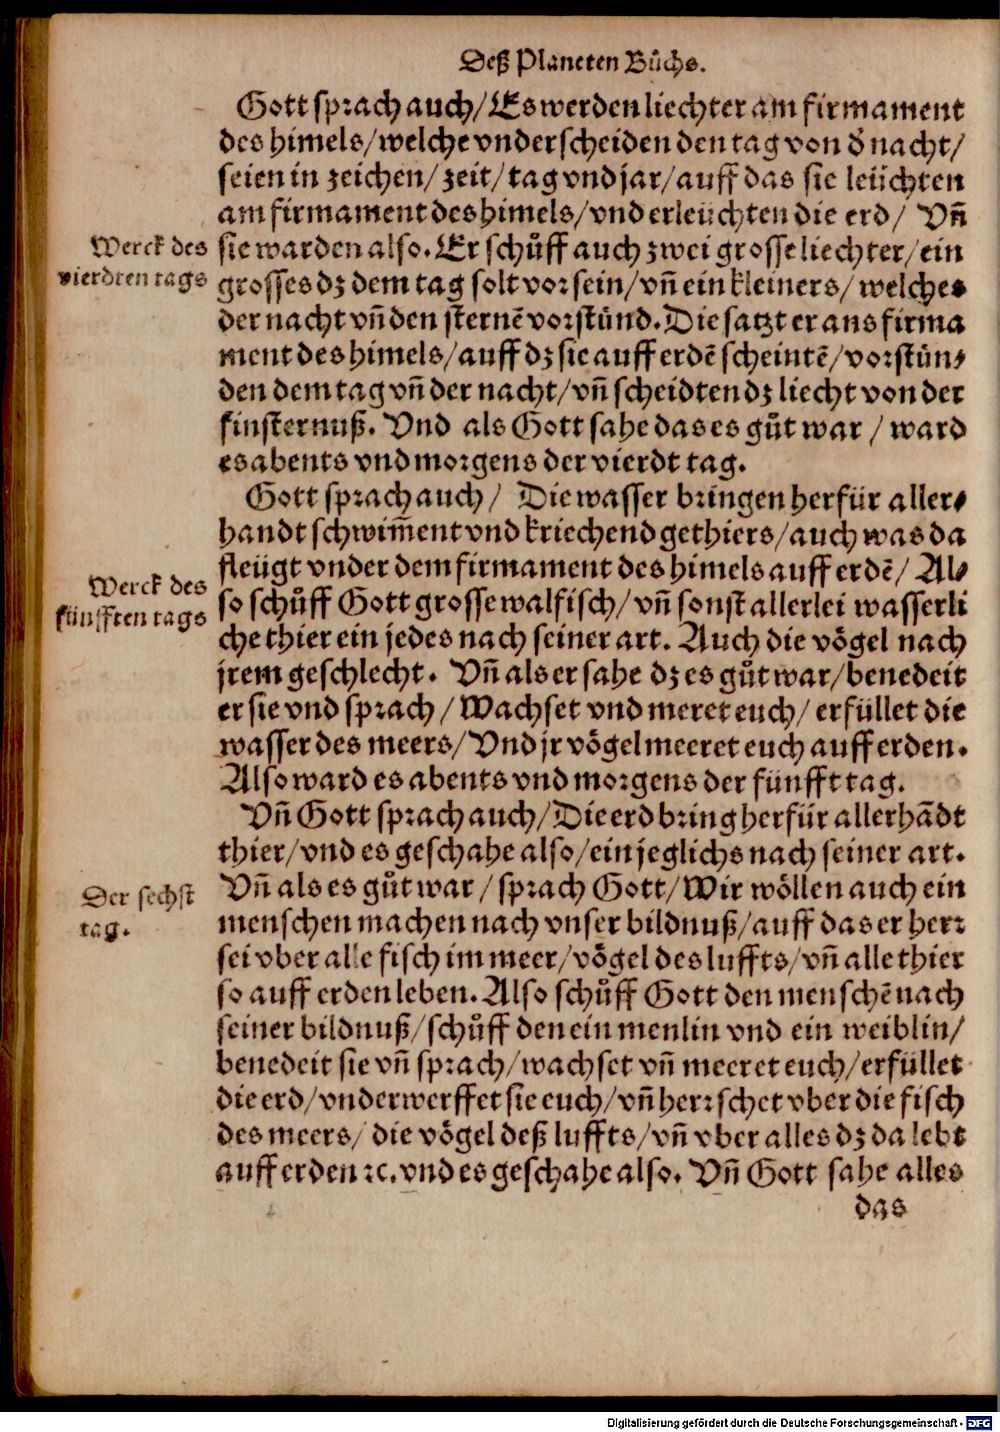 Deß Planeten Bůchs.
Gott sprach auch/ Es werden liechter am firmament
des himels/ welche vnderscheiden den tag von d̕ nacht/
seien in zeichen/ zeit/ tag vnd jar/ auff das sie leüchten
am firmament des himels/ vnd erleüchten die erd/ Vñ
Werck des
vierdten tags
sie warden also. Er schůff auch zwei grosse liechter/ ein
grosses dz dem tag solt vor sein/ vñ ein kleiners/ welches
der nacht vñ den sternē vorstünd. Die satzt er ans firma
ment des himels/ auff dz sie auff erdē scheintē/ vorstün⸗
den dem tag vñ der nacht/ vñ scheidten dz liecht von der
finsternuß. Vnd als Gott sahe das es gůt war / ward
es abents vnd morgens der vierdt tag.
Gott sprach auch/ Die wasser bringen herfür aller⸗
handt schwim̃ent vnd kriechend gethiers/ auch was da
fleügt vnder dem firmament des himels auff erdē/ Al⸗
Werck des
fünfften tags
so schůff Gott grosse walfisch/ vñ sonst allerlei wasserli
che thier ein jedes nach seiner art. Auch die vögel nach
jrem geschlecht. Vñ als er sahe dz es gůt war/ benedeit
er sie vnd sprach/ Wachset vnd meret euch/ erfüllet die
wasser des meers/ Vnd jr vögel meeret euch auff erden.
Also ward es abents vnd morgens der fünfft tag.
Vñ Gott sprach auch/ Die erd bring herfür allerhādt
thier/ vnd es geschahe also/ ein jeglichs nach seiner art.
Der sechst
tag.
Vñ als es gůt war/ sprach Gott/ Wir wöllen auch ein
menschen machen nach vnser bildnuß/ auff das er herr
sei vber alle fisch im meer/ vögel des luffts/ vñ alle thier
so auff erden leben. Also schůff Gott den menschē nach
seiner bildnuß/ schůff den ein menlin vnd ein weiblin/
benedeit sie vñ sprach/ wachset vñ meeret euch/ erfüllet
die erd/ vnderwerffet sie euch/ vñ herrschet vber die fisch
des meers/ die vögel deß luffts/ vñ vber alles dz da lebt
auff erden ⁊c. vnd es geschahe also. Vñ Gott sahe alles
das
Digitalisierung gefördert durch die Deutsche Forschungsgemeinschaft - DFG